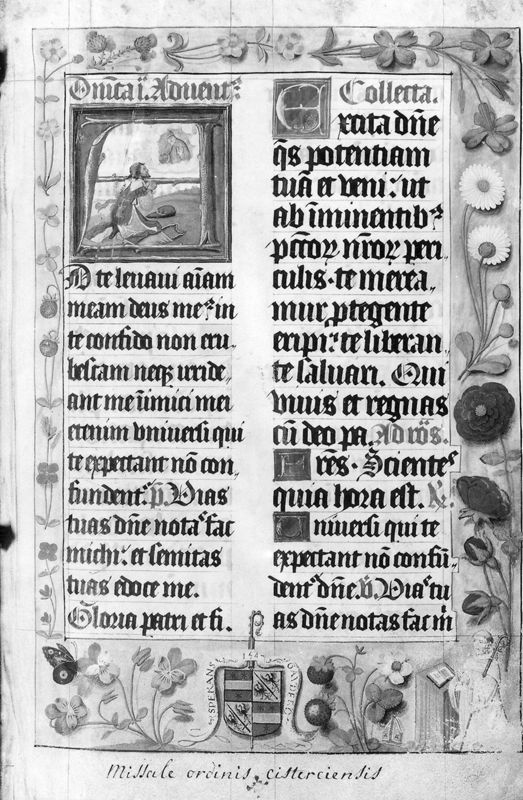 Dnica i. Advent᷒
A
D te levavi aīam
meam deus me᷒ in
te confido non eru⸗
bescam neqꝫ irride⸗
ant me inimici mei
etenim vniversi qui
te expectant nō con⸗
fundent᷒ p̄. Vias
tuas dn̄e nota᷒ fac
michi᷒ et semitas
tuas edoce me.
Gloria patri et fi.
Collecta.
Excita dn̄e
q̄s potentiam
tuā et veni᷒ ut
ab īminentib᷒
pcc̄oꝝ nr̄oꝝ peri⸗
culis te merea⸗
mur ꝓtegente
eripi᷒ te liberan⸗
te salvari. Qui
vivis et regnas
cū deo pa. Ad ro᷒s.
Fr̄es. Scientes
quia hora est. ℟.
Universi qui te
expectant nō confū⸗
dent᷒ dn̄e. ℣. Vias tu⸗
as dn̄e notas fac m̄
SPERANS
GAVDEBO
Missale ordinis cisterciensis